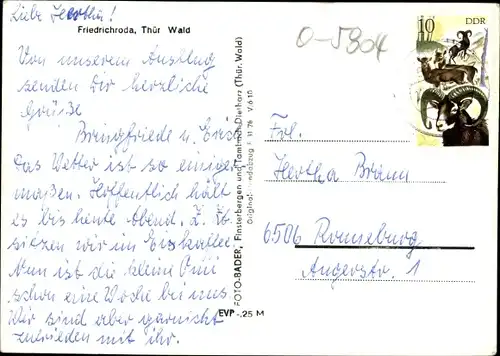 Liebe Hertha!
Friedrichroda, Thür Wald
Von unserem Ausflug
senden Dir herzliche
Grüße
Bringfriede u. Erich
Das Wetter ist so einiger
maßen. Hoffentlich hält
es bis heute Abend. Z. Zt.
sitzen wir im Eiskaffee
Nun ist die kleine
schon eine Woche bei uns
Wir sind aber garnicht
zufrieden mit ihr.
FOTO-BADER, Finsterbergen und Tambach-Dietharz (Thür. Wald)
V 6 10
EVP -.25 M
0-5804
10
DDR
Frl.
Hertha Bräun
6506 Ronneburg
Angerstr. 1